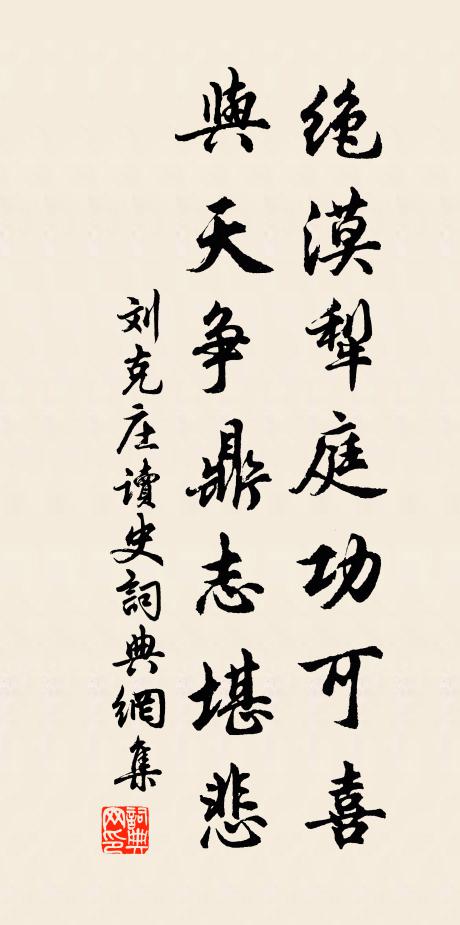 绝漠犁庭功可喜
與天争鼎志堪悲
刘克庄讀史詞典網集
詞典网印